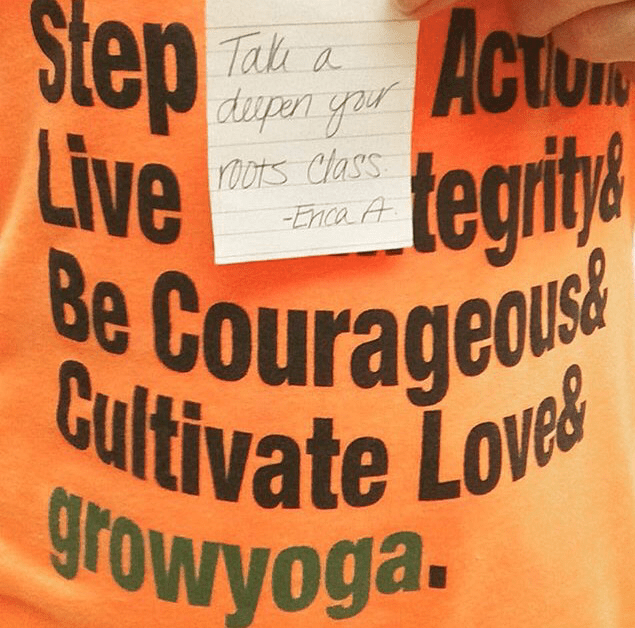 Step Action&
Take a
deepen your
roots class.
-Erica A.
Live tegrity&
Be Courageous&
Cultivate Love&
growyoga.